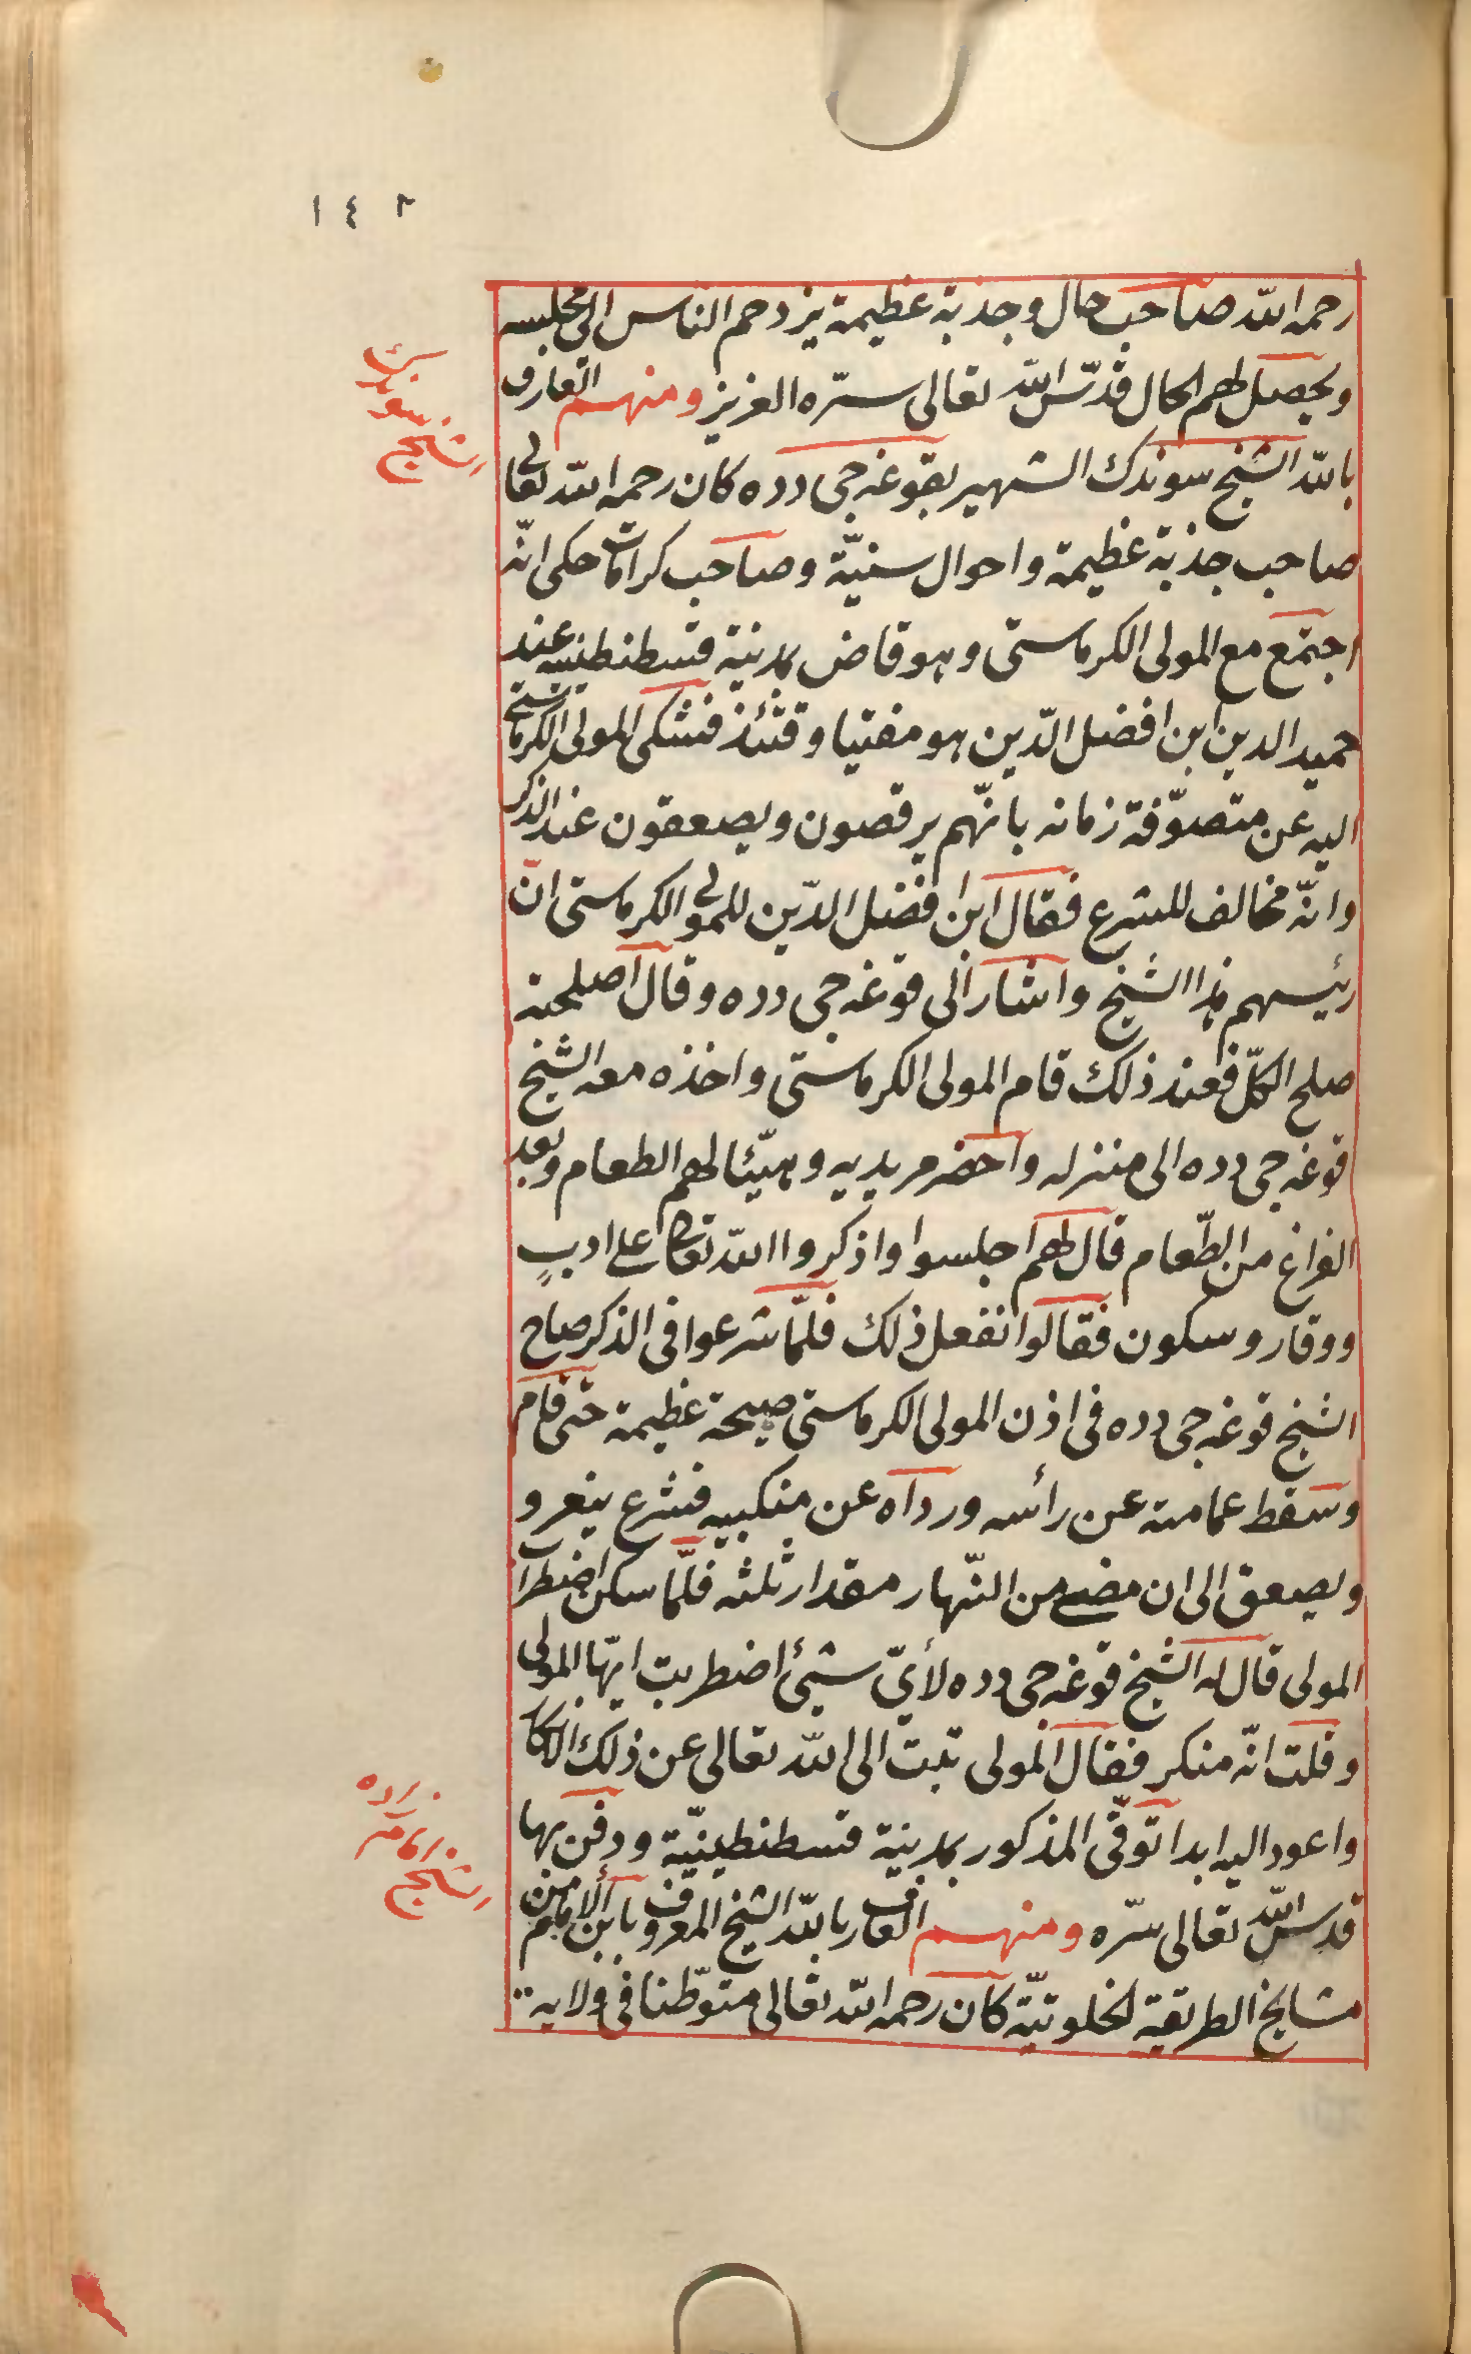 ١٤٢
رحمه الله صاحب حال وجذبة عظيمة يزدحم الناس الى مجلسه
ويحصل لهم الحال قدّس الله تعالى سرّه العزيز ومنهم العارف
بالله الشيخ سوندك الشهير بقوغه جى دده كان رحمه الله تعالى
صاحب جذبة عظيمة واحوال سنيّة وصاحب كرامات حكى انّه
اجتمع مع المولى الكرماستى وهو قاض بمدينة قسطنطينيه عند
حميد الدين ابن افضل الدّين هو مفتيا وقتئذ فشكى المولى الكرماستى
اليه عن متصوّفة زمانه بانّهم يرقصون ويصعقون عند الذكر
وانّه مخالف للشرع فقال ابن افضل الدّين للمولى الكرماستى انّ
رئيسهم هذا الشيخ واشار الى قوغه جى دده وقال اصلحته
صلح الكلّ فعند ذلك قام المولى الكرماستى واخذه معه الشيخ
قوغه جى دده الى منزله واحضر مريديه وهيّئا لهم الطعام وبعد
الفراغ من الطّعام قال لهم اجلسوا واذكروا الله تعالى على ادبٍ
ووقار وسكون فقالوا نفعل ذلك فلمّا شرعوا فى الذكر صاح
الشيخ قوغه جى دده فى اذن المولى الكرماستى صيحة عظيمة حتى قام
وسقط عمامته عن رائسه ورداه عن منكبيه فشرع ينعر و
ويصعق الى ان مضى من النّهار مقدار ثلثه فلمّا سكن اضطرا
المولى قال له الشيخ قوغه جى دده لأىّ شيئ اضطربت ايّها المولى
وقلت انّه منكر فقال المولى تبت الى الله تعالى عن ذلك الانكا
واعود اليه ابدا توفّى المذكور بمدينة قسطنطينيّة ودفن بها
قدس الله تعالى سرّه ومنهم العارف بالله الشيخ المعروف بابن الامام من
مشايخ الطريقية الخلوتيّة كان رحمه الله تعالى متوطّنا فى ولايه
الشيخ سوندك
الشيخ امام زاده